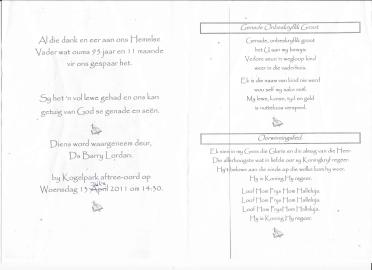 Al die dank en eer aan ons Hemelse
Vader wat ouma 95 jaar en 11 maande
vir ons gespaar het.
Sy het 'n vol lewe gehad en ons kan
getuig van God se genade en seën.
Diens word waargeneem deur,
Ds Barry Lordan.
by Kogelpark aftree-oord op
July
Woensdag 13 April 2011 om 14:30.
Genade Onbeskryflik Groot
Genade, onbeskryflik groot
het U aan my bewys.
Verlore seun 'n wegloop kind
weer in die vaderhuis.
Ek is die naam van kind nie werd
wou self my sake reël.
My lewe, kanse, tyd en geld
is nutteloos verspeel.
Oorwinningslied
Ek sien in my Gees die Glorie en die aansig van die Heer
Die allerhoogste wat in liefde oor sy Koninkryk regeer.
Hy't bekom aan die sonde op die welke hom by voer.
Hy is Koning Hy regeer.
Loof Hom Prys Hom Halleluja.
Loof Hom Prys Hom Halleluja.
Loof Hom Prys Hom Halleluja.
Hy is Koning Hy regeer.